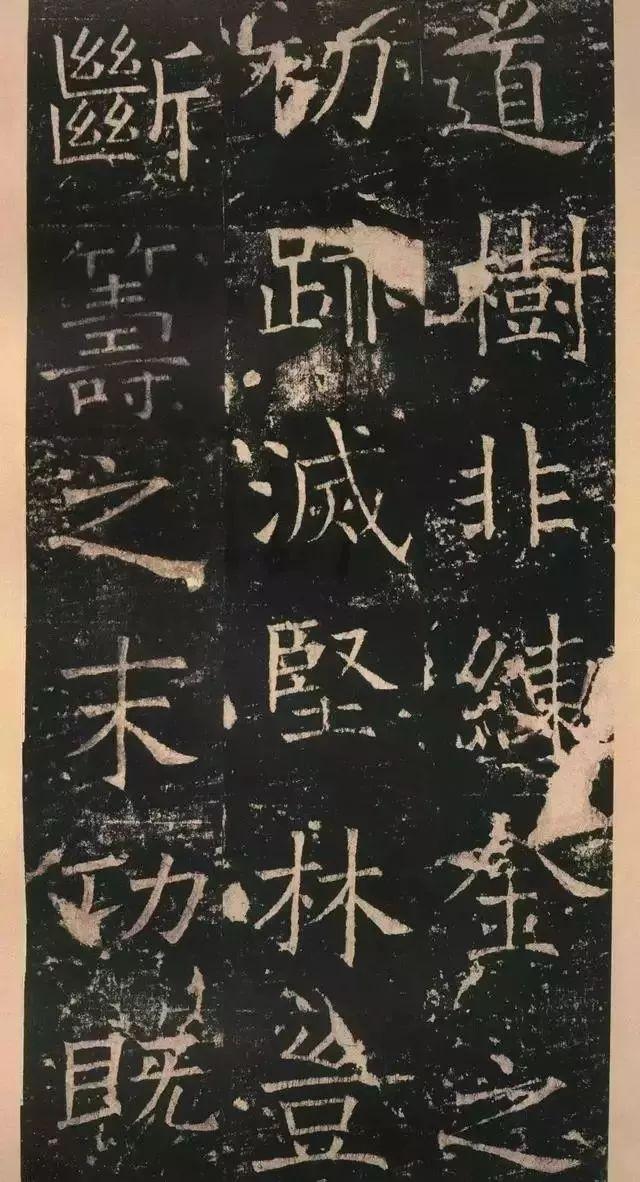 道樹非練金之
初跡滅堅林豈
斷籌之末功既